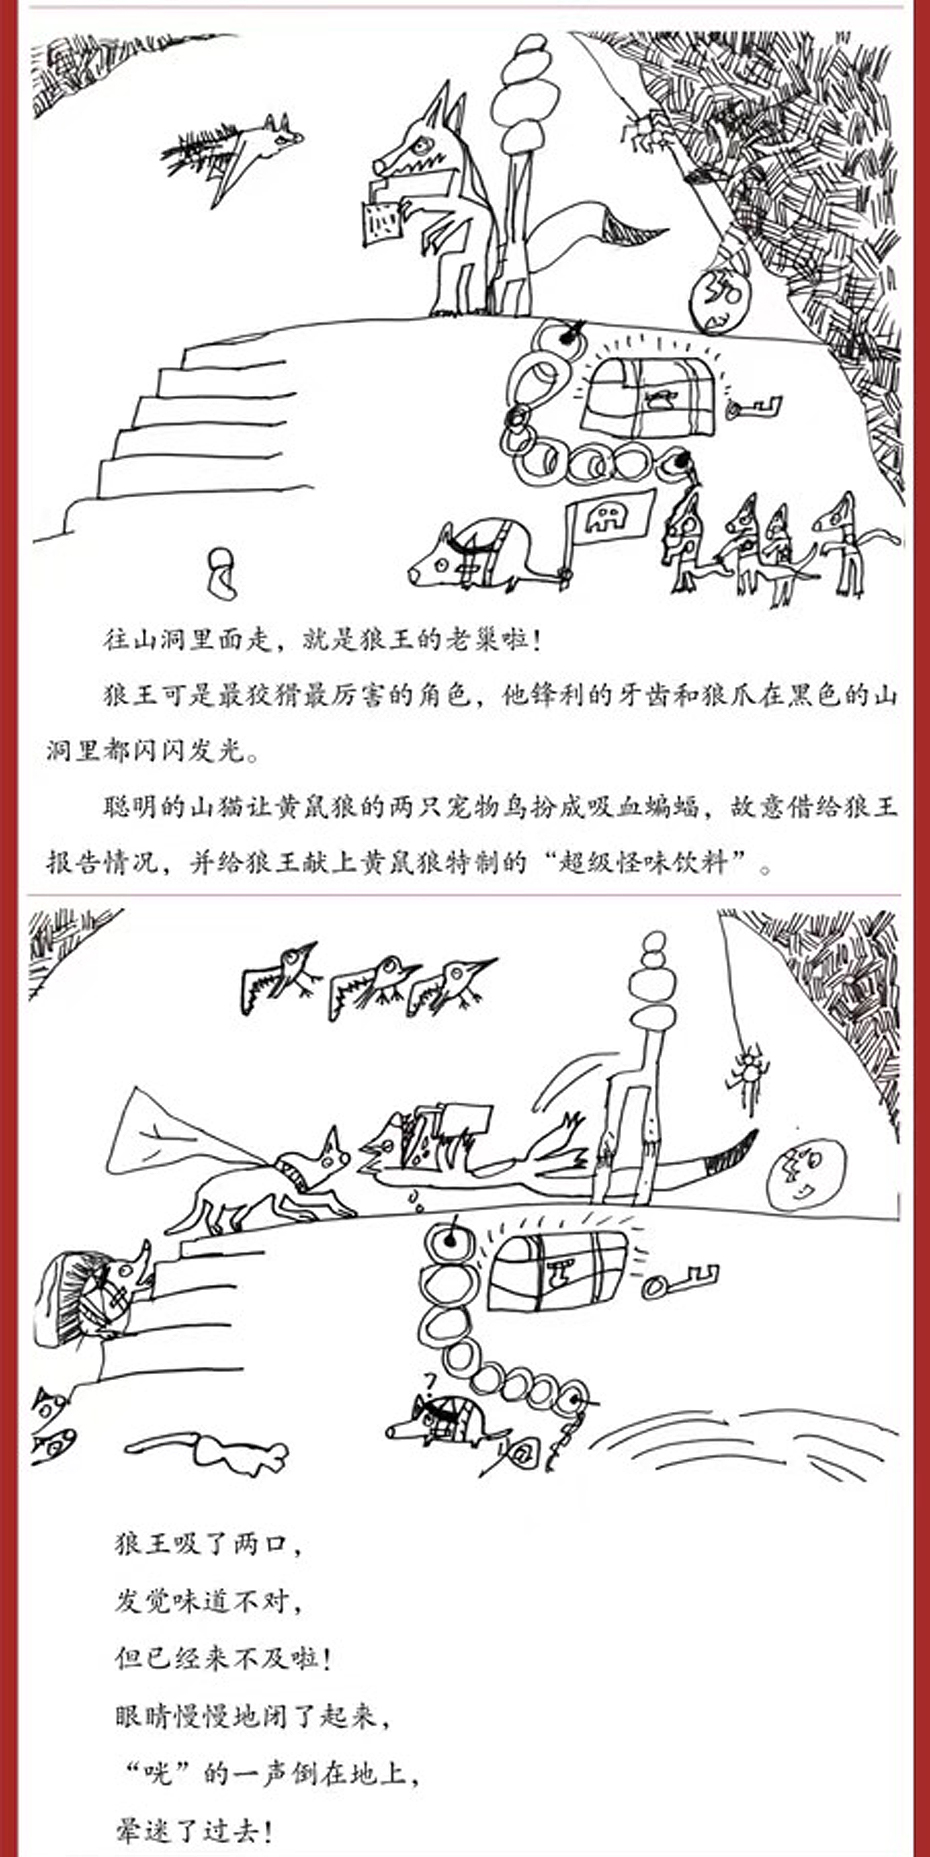 往山洞里面走，就是狼王的老巢啦！
狼王可是最狡猾最厉害的角色，他锋利的牙齿和狼爪在黑色的山
洞里都闪闪发光。
聪明的山猫让黄鼠狼的两只宠物鸟扮成吸血蝙蝠，故意借给狼王
报告情况，并给狼王献上黄鼠狼特制的“超级怪味饮料”。
？
狼王吸了两口，
发觉味道不对，
但已经来不及啦！
眼睛慢慢地闭了起来，
“咣”的一声倒在地上，
晕迷了过去！